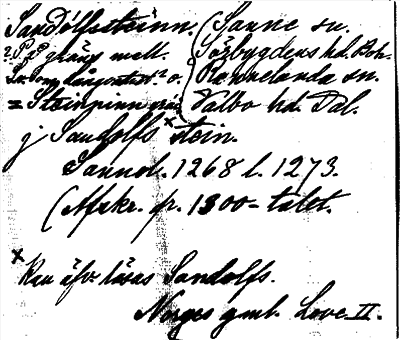 Sandólfssteinn. (Sanne sn.
? P. på gräns mell. Sörbygdens hd. Boh.
o. Rännelanda sn.
= Steinpinn Valbo hd. Dal.
j Sandolfs x stein.
Sannol. 1268 l. 1273.
(Afskr. fr. 1300-talet.
x
Kan äfv. läsas Sandolfs.
Norges gml. Love II.